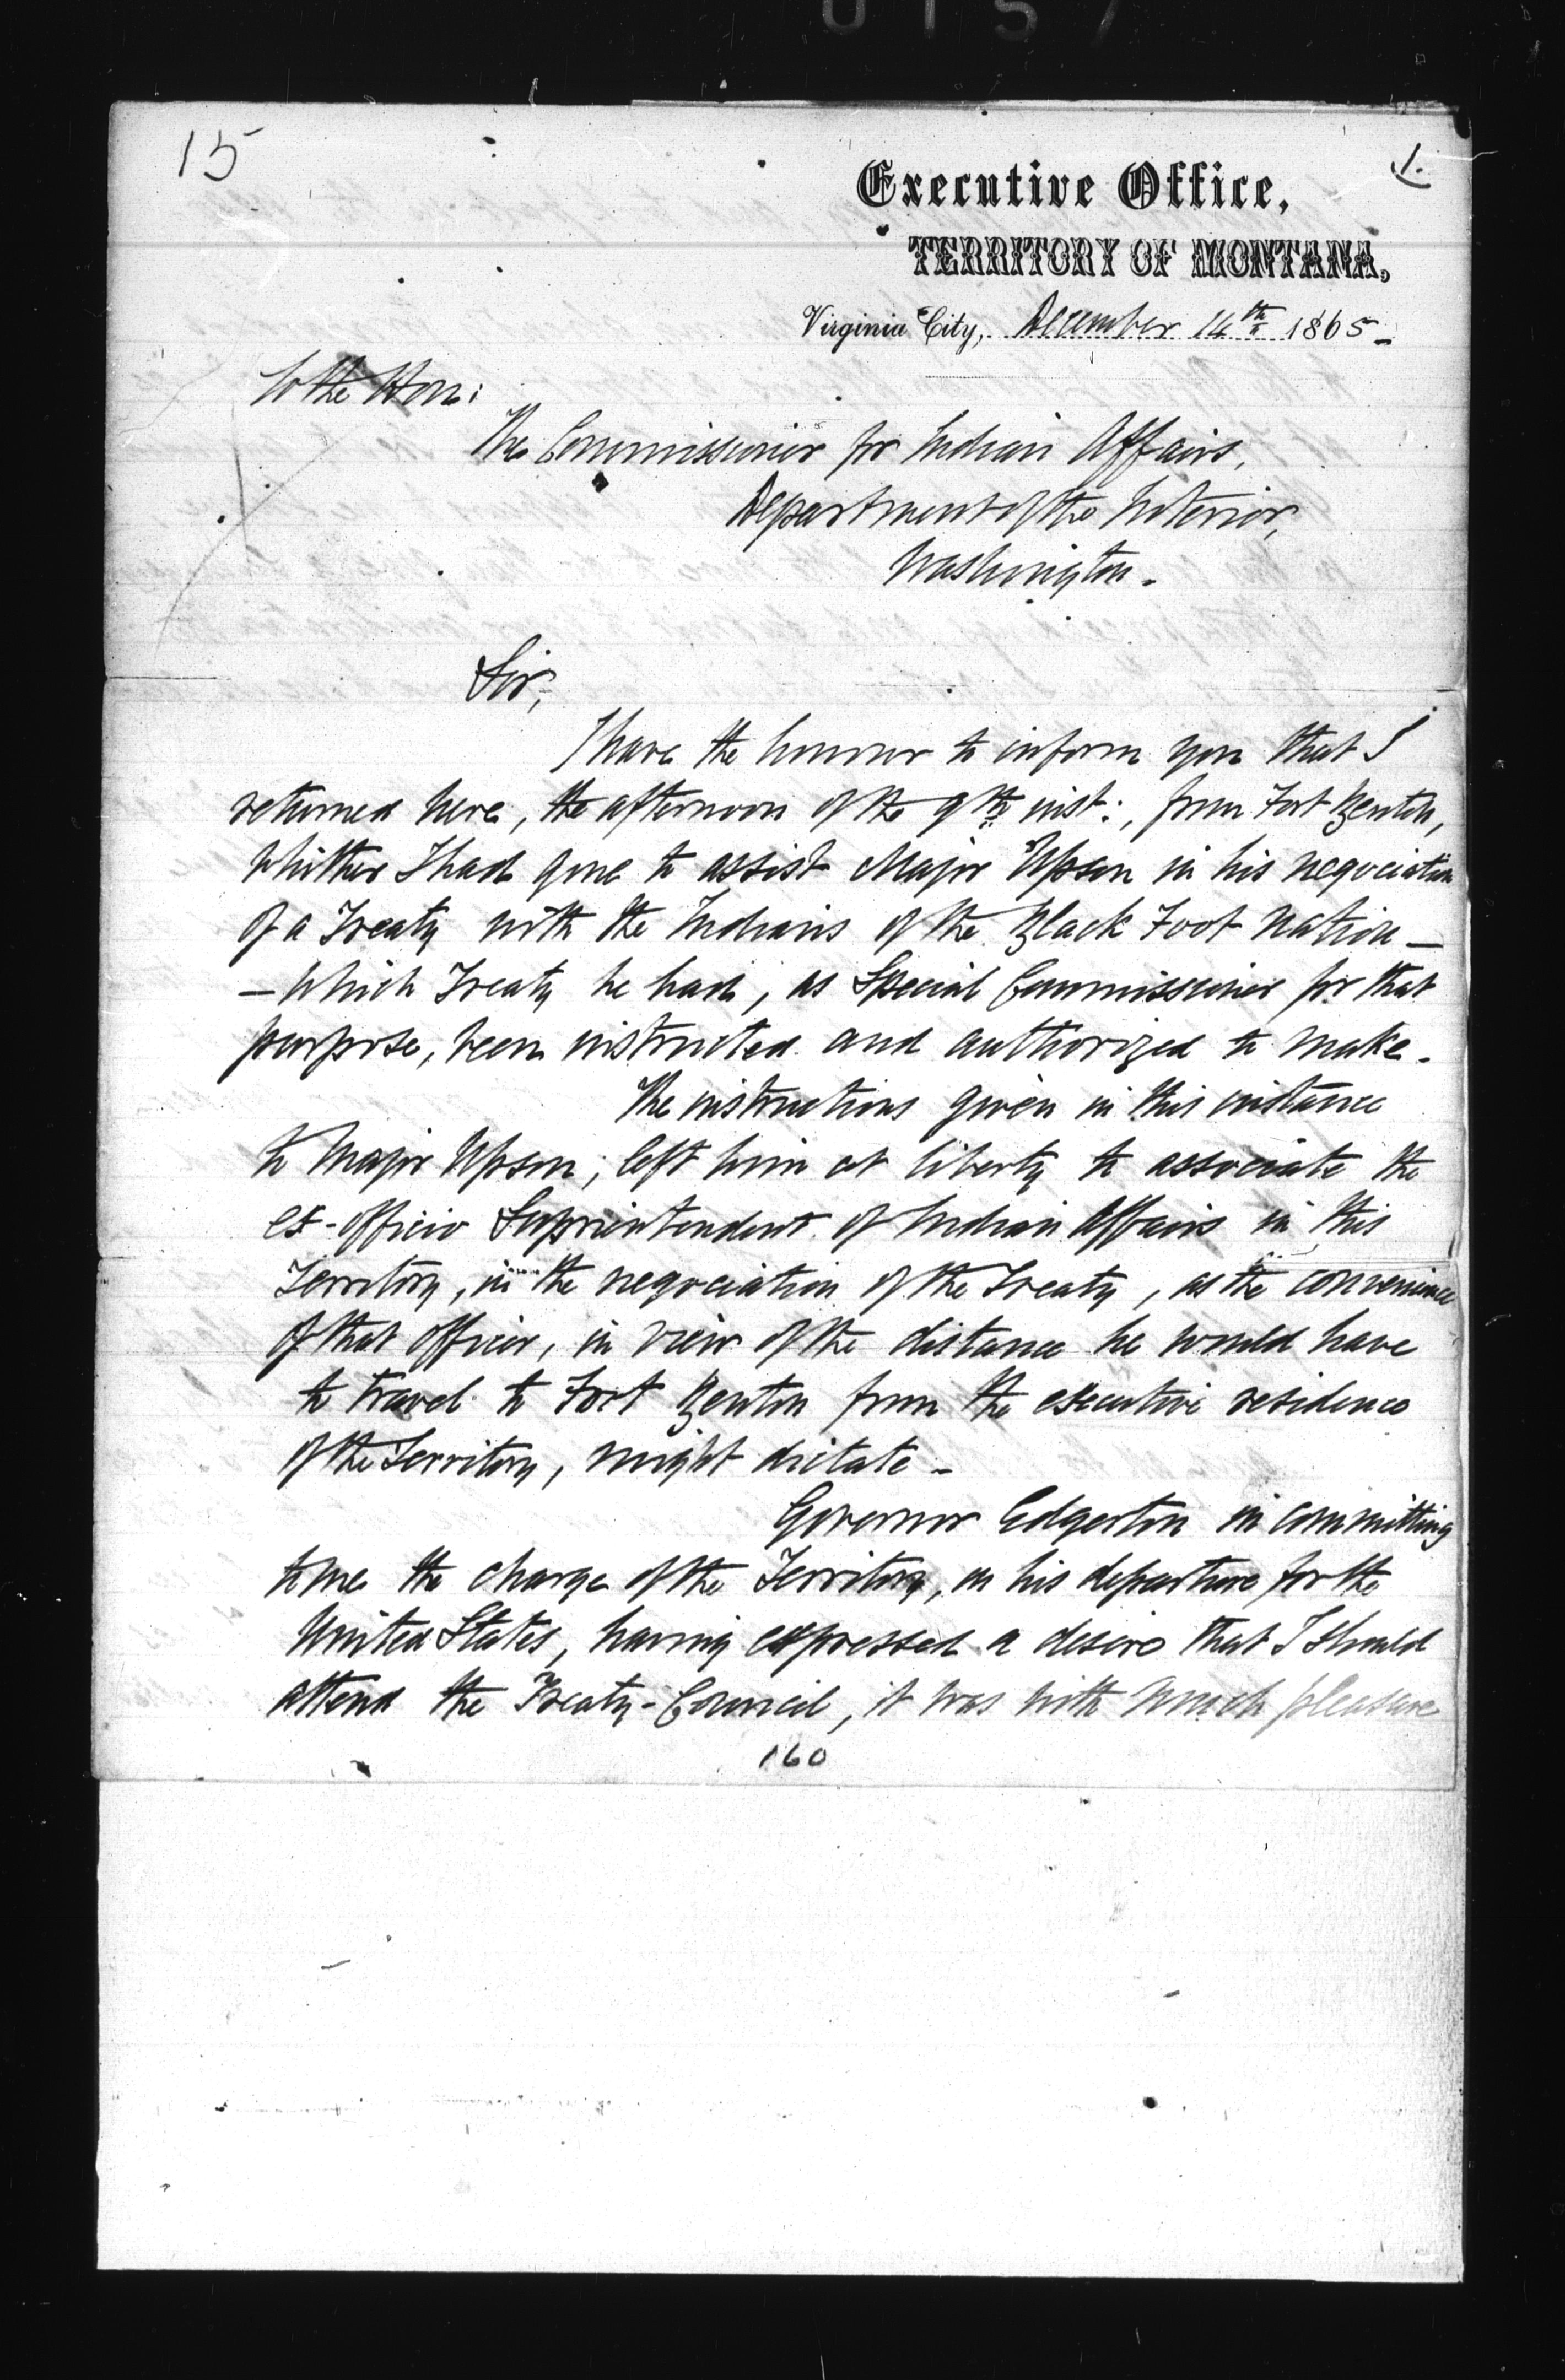 15
1.
Executive Office,
TERRITORY OF MONTANA,
Virginia City, December 14th 1865-
To the Hon:
The Commissioner for Indian Affairs,
Department of the Interior,
Washington.
Sir,
I have the honour to inform you that I
returned here, the afternoon of the 9th inst:, from Fort Benton,
whither I had gone to assist Major Upson in his negociation
of a Treaty with the Indians of the Black Foot Nation —
— which Treaty he had, as Special Commissioner for that
purpose, been instructed and authorized to make.
The instructions given in this instance
to Major Upson, left him at liberty to associate the
ex-officio Suprientendent of Indian Affairs in this
Territory, in the negociation of the Treaty, as the convenience
of that officer, in view of the distance he would have
to travel to Fort Benton from the executive residence
of the Territory, might dictate -
Governor Edgerton in committing
to me the charge of the Territory, on his departure for the
United States, having expressed a desire that I should
attend the Treaty-Council, it was with much pleasure
160